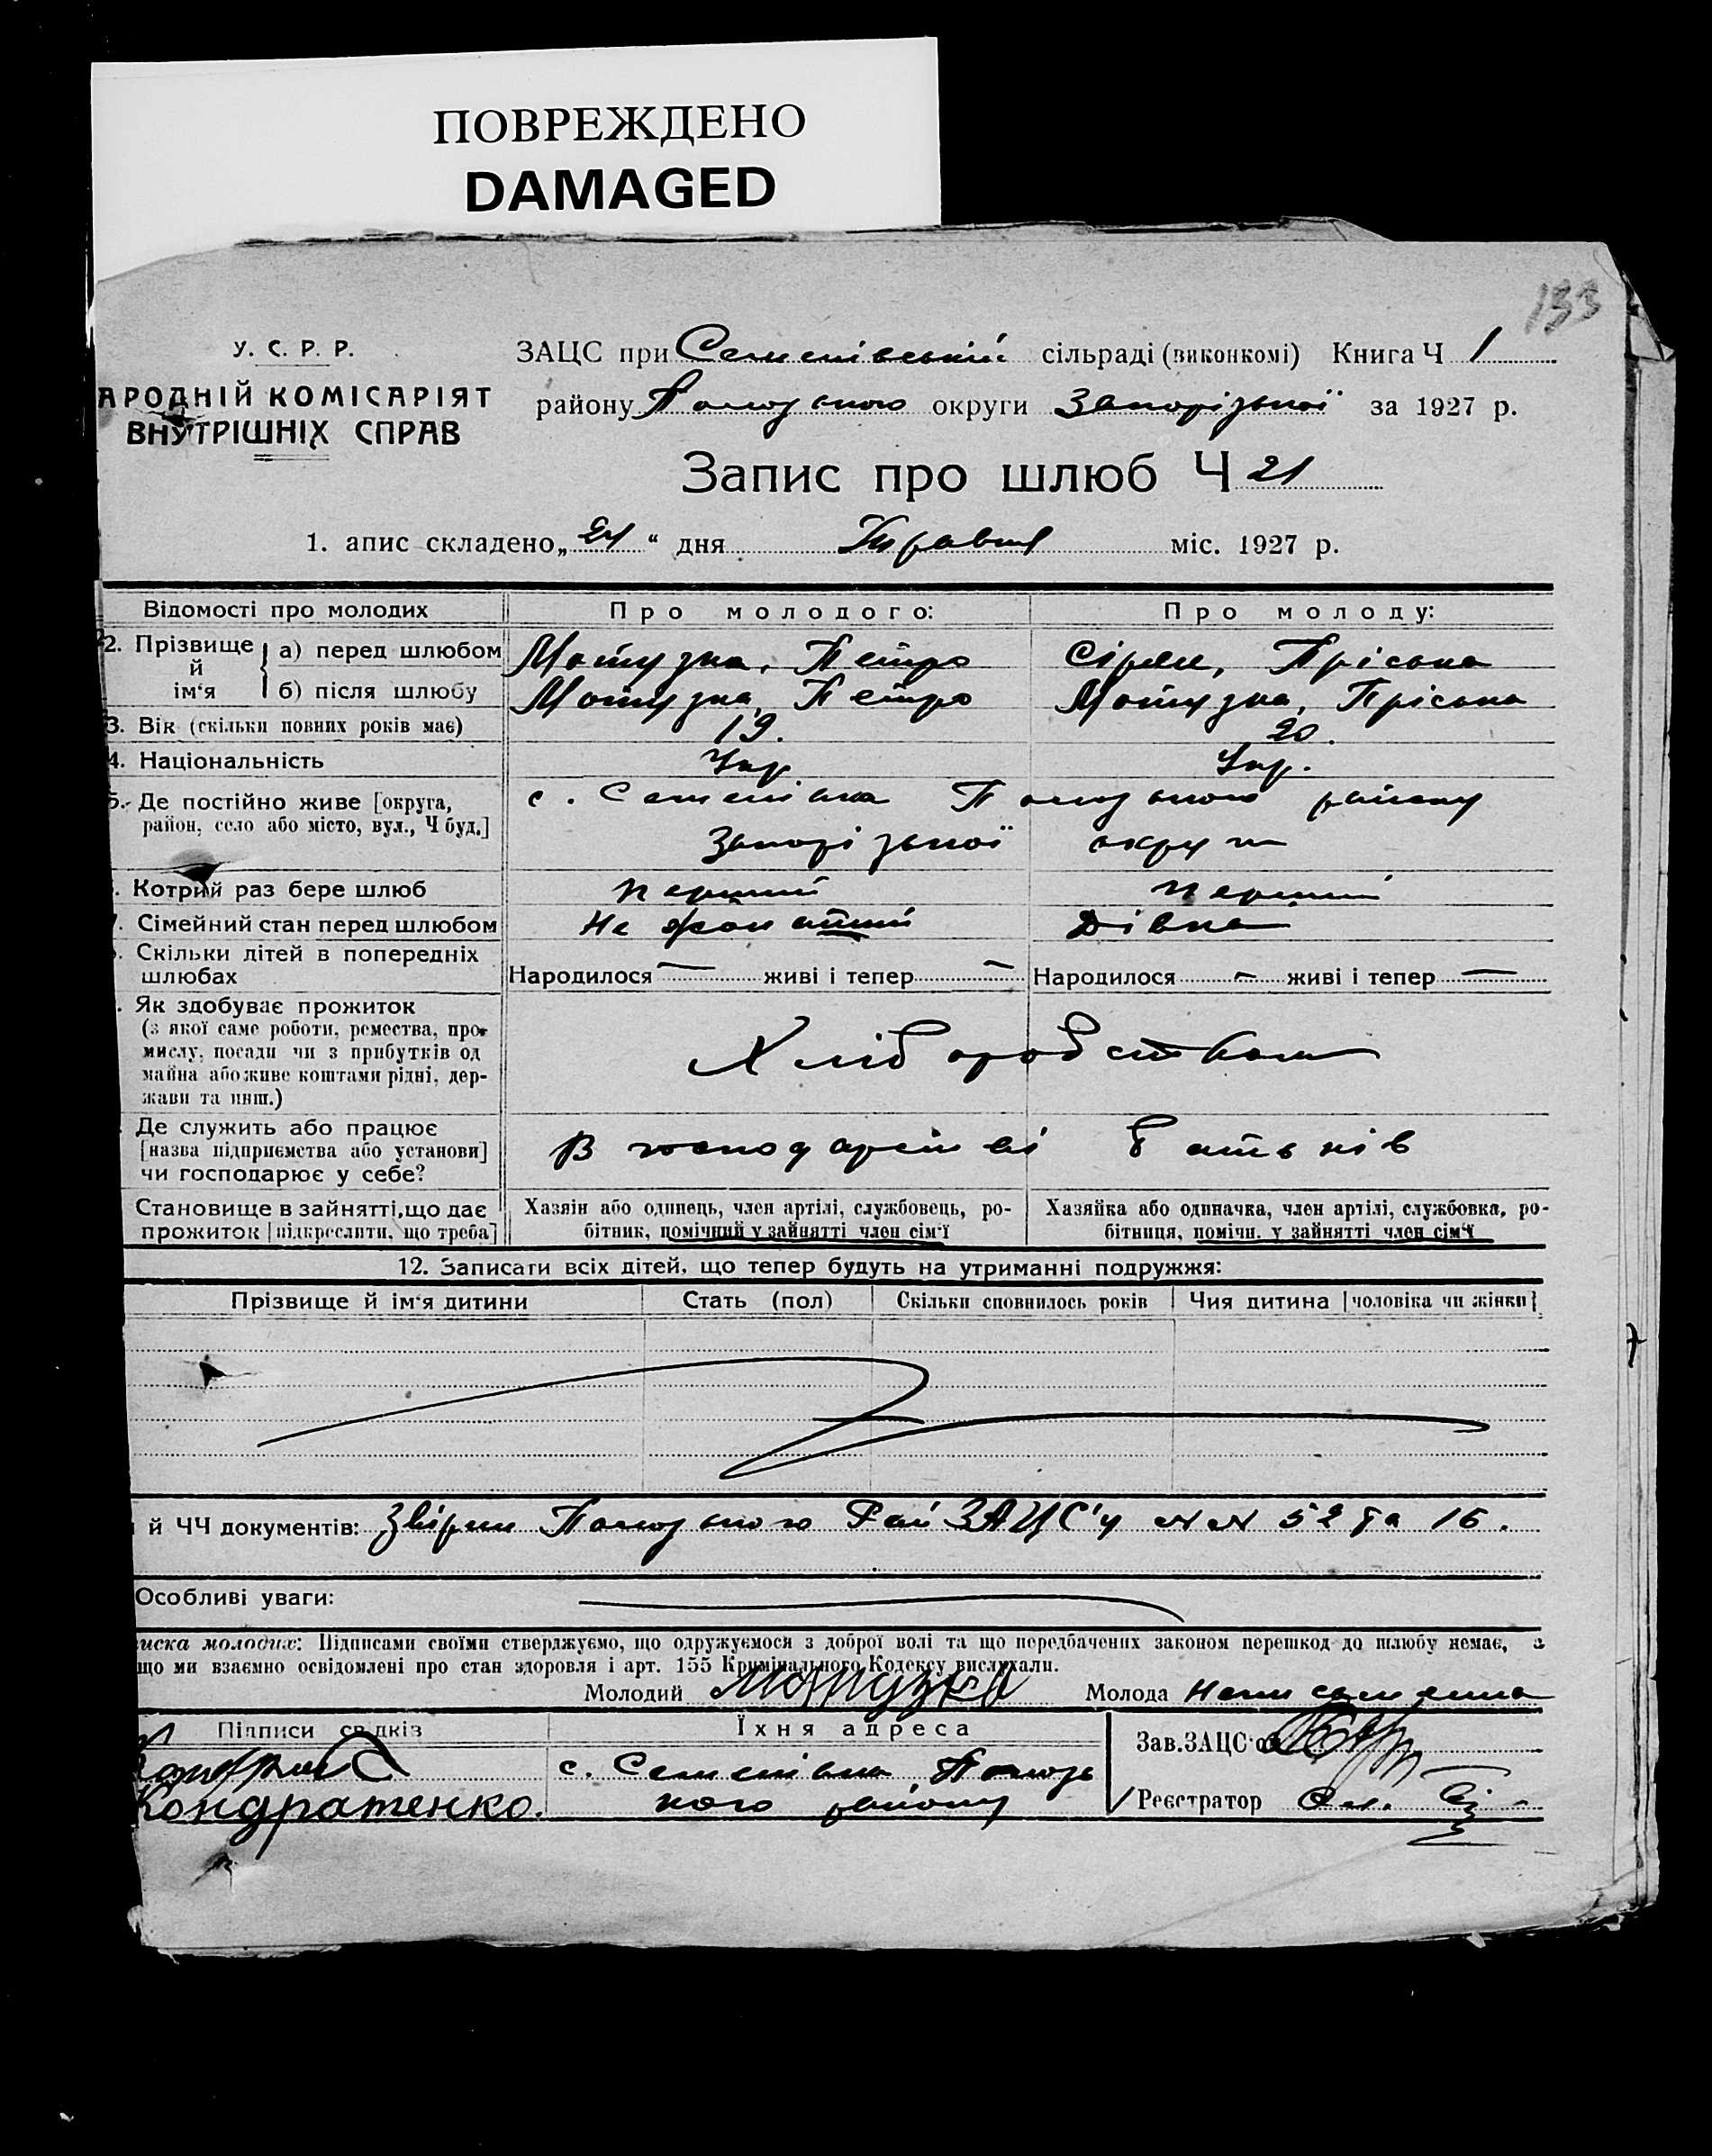 ПОВРЕЖДЕНО
DAMAGED
133
У. С. Р. Р.
АРОДНІЙ КОМІСАРІЯТ
ВНУТРІШНІХ СПРАВ
ЗАЦС при Семенівській сільраді (виконкомі) Книга Ч 1
району округи Запорізької за 1927 р.
Запис про шлюб Ч 21
1. апис складено „24“ дня Травня міс. 1927 р.
Відомості про молодих Про молодого: Про молоду:
2. Прізвище й ім‘я а) перед шлюбом Мотузка, Петро Пріська
б) після шлюбу Мотузка, Петро Мотузка, Пріська
3. Вік (скільки повних років має) 19. 20.
4. Національність Укр Укр.
5. Де постійно живе [округа, с. Семенівка району
район, село або місто, вул., Ч буд.] Запорізької округи
. Котрий раз бере шлюб перший перший
7. Сімейний стан перед шлюбом Не жонатий Дівка
Скільки дітей в попередніх
шлюбах Народилося — живі і тепер — Народилося — живі і тепер —
. Як здобуває прожиток
(з якої саме роботи, ремества, про-
мислу, посади чи з прибутків од
майна або живе коштами рідні, дер-
жави та инш.)
Хліборобством
Де служить або працює
[назва підприємства або установи]
чи господарює у себе?
В господарстві батьків
Становище в зайнятті, що дає
прожиток [підкреслити, що треба]
Хазяін або одинець, член артілі, службовець, ро-
бітник, помічний у зайнятті член сім‘ї
Хазяйка або одиначка, член артілі, службовка, ро-
бітниця, помічн. у зайнятті член сім‘ї
12. Записати всіх дітей, що тепер будуть на утриманні подружжя:
Прізвище й ім‘я дитини Стать (пол) Скільки сповнилось років Чия дитина [чоловіка чи жінки]
й ЧЧ документів: Рай ЗАЦС'у NN 52 та 16.
Особливі уваги:
иска молодих: Підписами своїми стверджуємо, що одружуємося з доброї волі та що передбачених законом перешкод до шлюбу немає, а
що ми взаємно освідомлені про стан здоровля і арт. 155 Кримінального Кодексу вислухали.
Молодий Мотузка Молода Неписьменна
Підписи свідків Їхня адреса
Зав. ЗАЦС'ом
с. Семенівка
Кондратенко. ного району
Реєстратор